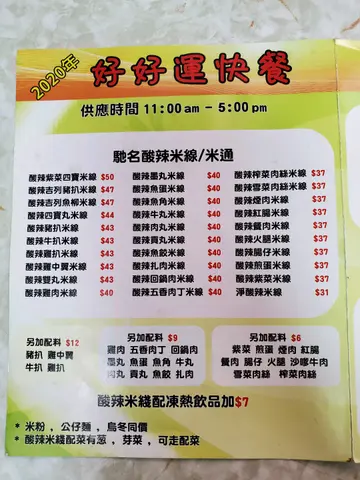 2020年
好好運快餐
供應時間 11:00 am - 5:00 pm
馳名酸辣米線/米通
酸辣紫菜四寶米線 $50
酸辣吉列豬扒米線 $47
酸辣吉列魚柳米線 $47
酸辣四寶丸米線 $44
酸辣豬扒米線 $43
酸辣牛扒米線 $43
酸辣雞扒米線 $43
酸辣雞中翼米線 $43
酸辣雙丸米線 $41
酸辣雞肉米線 $40
酸辣墨丸米線 $40
酸辣魚蛋米線 $40
酸辣魚角米線 $40
酸辣牛丸米線 $40
酸辣貢丸米線 $40
酸辣魚餃米線 $40
酸辣扎肉米線 $40
酸辣回鍋肉米線 $40
酸辣五香肉丁米線 $40
酸辣榨菜肉絲米線 $37
酸辣雪菜肉絲米線 $37
酸辣煙肉米線 $37
酸辣紅腸米線 $37
酸辣餐肉米線 $37
酸辣火腿米線 $37
酸辣腸仔米線 $37
酸辣煎蛋米線 $37
酸辣紫菜米線 $37
淨酸辣米線 $31
另加配料 $12
豬扒 雞中翼
牛扒 雞扒
另加配料 $9
雞肉 五香肉丁 回鍋肉
墨丸 魚蛋 魚角 牛丸
肉丸 貢丸 魚餃 扎肉
另加配料 $6
紫菜 煎蛋 煙肉 紅腸
餐肉 腸仔 火腿 沙嗲牛肉
雪菜肉絲 榨菜肉絲
酸辣米綫配凍熱飲品加$7
* 米粉 , 公仔麵 , 烏冬同價
* 酸辣米綫配菜有蔥 , 芽菜 , 可走配菜